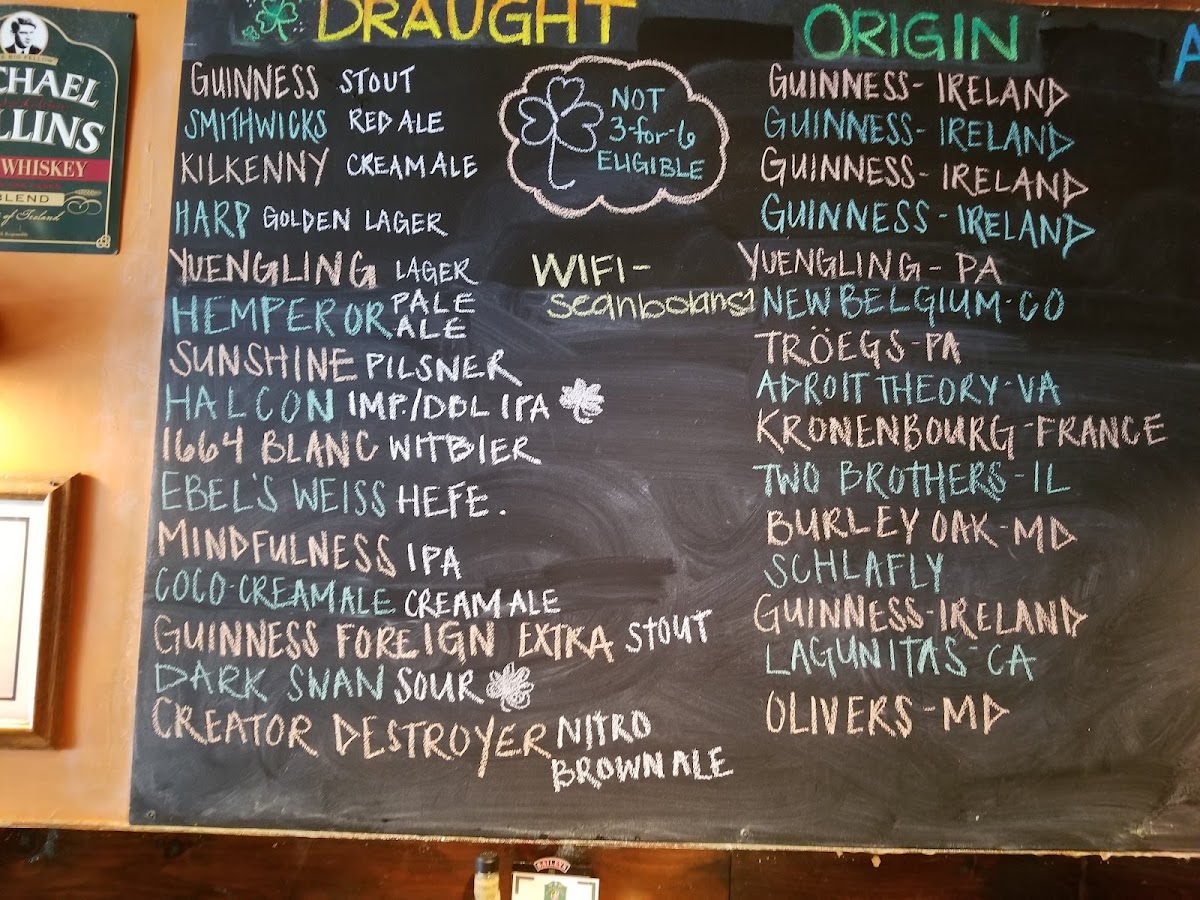 DRAUGHT ORIGIN A
GUINNESS STOUT GUINNESS- IRELAND
SMITHWICKS RED ALE GUINNESS- IRELAND
KILKENNY CREAM ALE GUINNESS- IRELAND
HARP GOLDEN LAGER GUINNESS- IRELAND
NOT
3-for-6
ELIGIBLE
YUENGLING LAGER YUENGLING- PA
HEMPEROR PALE ALE NEW BELGIUM-CO
WIFI-
seanbolans1
SUNSHINE PILSNER TRÖEGS-PA
HALCON IMP./DBL IPA ADROIT THEORY-VA
1664 BLANC WITBIER KRONENBOURG-FRANCE
EBEL'S WEISS HEFE. TWO BROTHERS-IL
MINDFULNESS IPA BURLEY OAK-MD
COCO-CREAM ALE CREAM ALE SCHLAFLY
GUINNESS FOREIGN EXTRA STOUT GUINNESS-IRELAND
DARK SWAN SOUR LAGUNITAS-CA
CREATOR DESTROYER NITRO BROWN ALE OLIVERS-MD
CHAEL
LLINS
WHISKEY
BLEND
of Ireland
BAILEYS